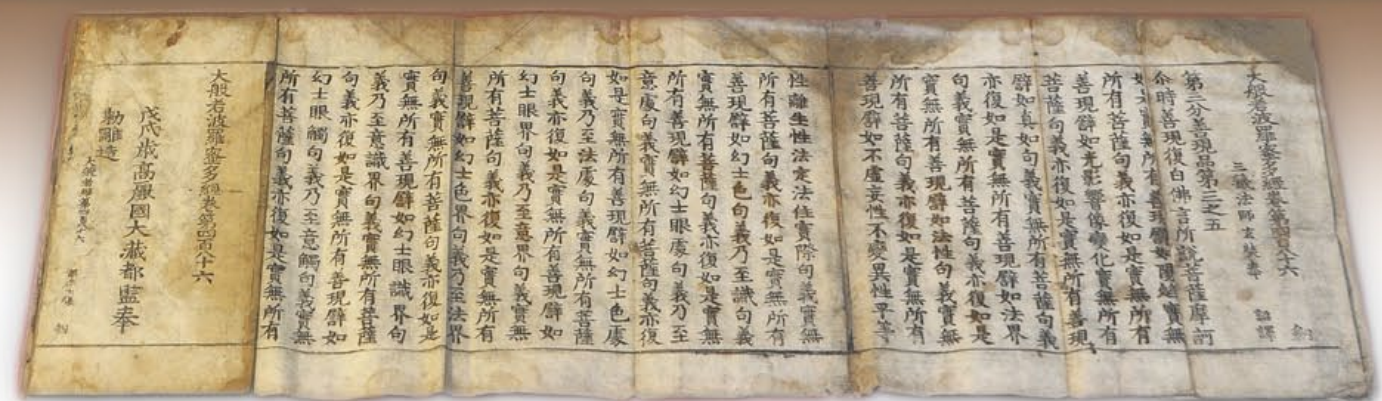 大般若波羅蜜多經卷第四百八十六
三藏法師玄奘奉 詔譯
第三分善現品第三之五
尒時善現復白佛言所說菩薩摩訶
無所有善現譬如 實無
所有菩薩句義亦復如是實無所有
善現譬如光影響像變化實無所有
菩薩句義亦復如是實無所有善現
譬如真如句義實無所有菩薩句義
亦復如是實無所有善現譬如法界
句義實無所有菩薩句義亦復如是
實無所有善現譬如法性句義實無
所有菩薩句義亦復如是實無所有
善現譬如不虛妄性不變異性平等
性離生性法定法住實際句義實無
所有菩薩句義亦復如是實無所有
善現譬如幻士色句義乃至識句義
實無所有菩薩句義亦復如是實無
所有善現譬如幻士眼處句義乃至
意處句義實無所有菩薩句義亦復
如是實無所有善現譬如幻士色處
句義乃至法處句義實無所有菩薩
句義亦復如是實無所有善現譬如
幻士眼界句義乃至意界句義實無
所有菩薩句義亦復如是實無所有
善現譬如幻士色界句義乃至法界
句義實無所有菩薩句義亦復如是
實無所有善現譬如幻士眼識界句
義乃至意識界句義實無所有菩薩
句義亦復如是實無所有善現譬如
幻士眼觸句義乃至意觸句義實無
所有菩薩句義亦復如是實無所有
大般若波羅蜜多經卷第四百八十六
戊戌歲高麗國大藏都監奉
勅雕造